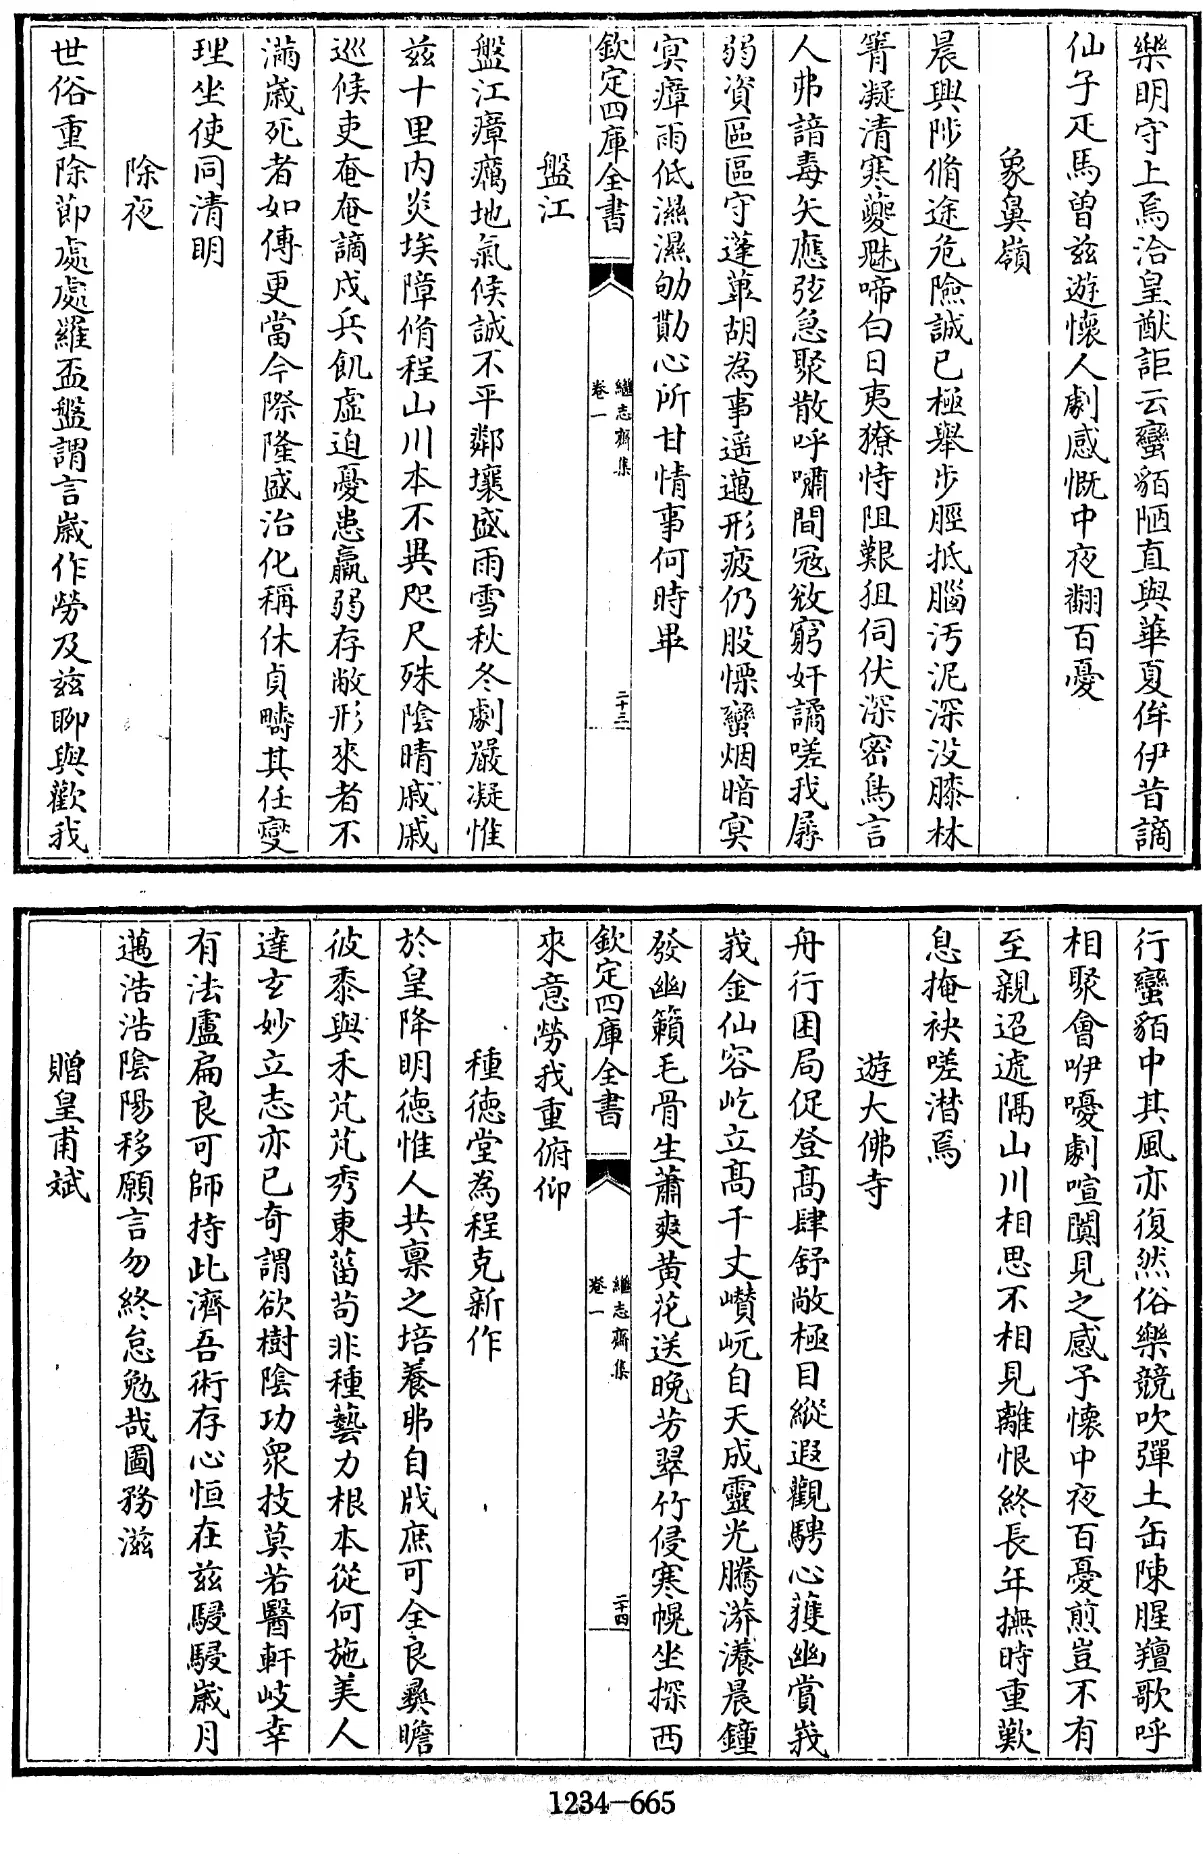 樂明守上焉洽皇猷詎云蠻貊陋直與華夏侔伊昔謫
仙子疋馬曾兹遊懷人劇感慨中夜翻百憂
象鼻嶺
晨興陟脩途危險誠已極舉步脛抵腦汚泥深没膝林
箐凝清寒夔魅啼白日夷獠恃阻艱狙伺伏深密鳥言
人弗諳毒矢應弦急聚散呼嘯間冦敓窮奸譎嗟我孱
弱資區區守蓬蓽胡為事遥邁形疲仍股慄蠻烟暗冥
冥瘴雨低濕濕劬勩心所甘情事何時畢
欽定四庫全書
繼志齋集
卷一
二十三
盤江
盤江瘴癘地氣候誠不平鄰壤盛雨雪秋冬劇嚴凝惟
兹十里内炎埃障脩程山川本不異咫尺殊陰晴戚戚
巡候吏奄奄謫戍兵飢虚迫憂患羸弱存敝形來者不
滿嵗死者如傳更當今際隆盛治化稱休貞疇其任變
理坐使同清明
除夜
世俗重除節處處羅盃盤謂言嵗作勞及兹聊與歡我
行蠻貊中其風亦復然俗樂競吹彈土缶陳腥羶歌呼
相聚會咿嚘劇喧闐見之感予懷中夜百憂煎豈不有
至親迢遞隔山川相思不相見離恨終長年撫時重歎
息掩袂嗟潛焉
遊大佛寺
舟行困局促登髙肆舒敞極目縱遐觀騁心獲幽賞峩
峩金仙容屹立髙千丈巑岏自天成靈光騰漭瀁晨鐘
發幽籟毛骨生蕭爽黄花送晚芳翠竹侵寒幌坐探西
欽定四庫全書
繼志齋集
卷一
二十四
來意勞我重俯仰
種徳堂為程克新作
於皇降明徳惟人共禀之培養弗自戕庶可全良彝瞻
彼黍與禾芃芃秀東菑苟非種藝力根本從何施美人
達玄妙立志亦已奇謂欲樹陰功衆技莫若醫軒岐幸
有法盧扁良可師持此濟吾術存心恒在兹駸駸嵗月
邁浩浩陰陽移願言勿終怠勉哉圖務滋
贈皇甫斌
1234-665